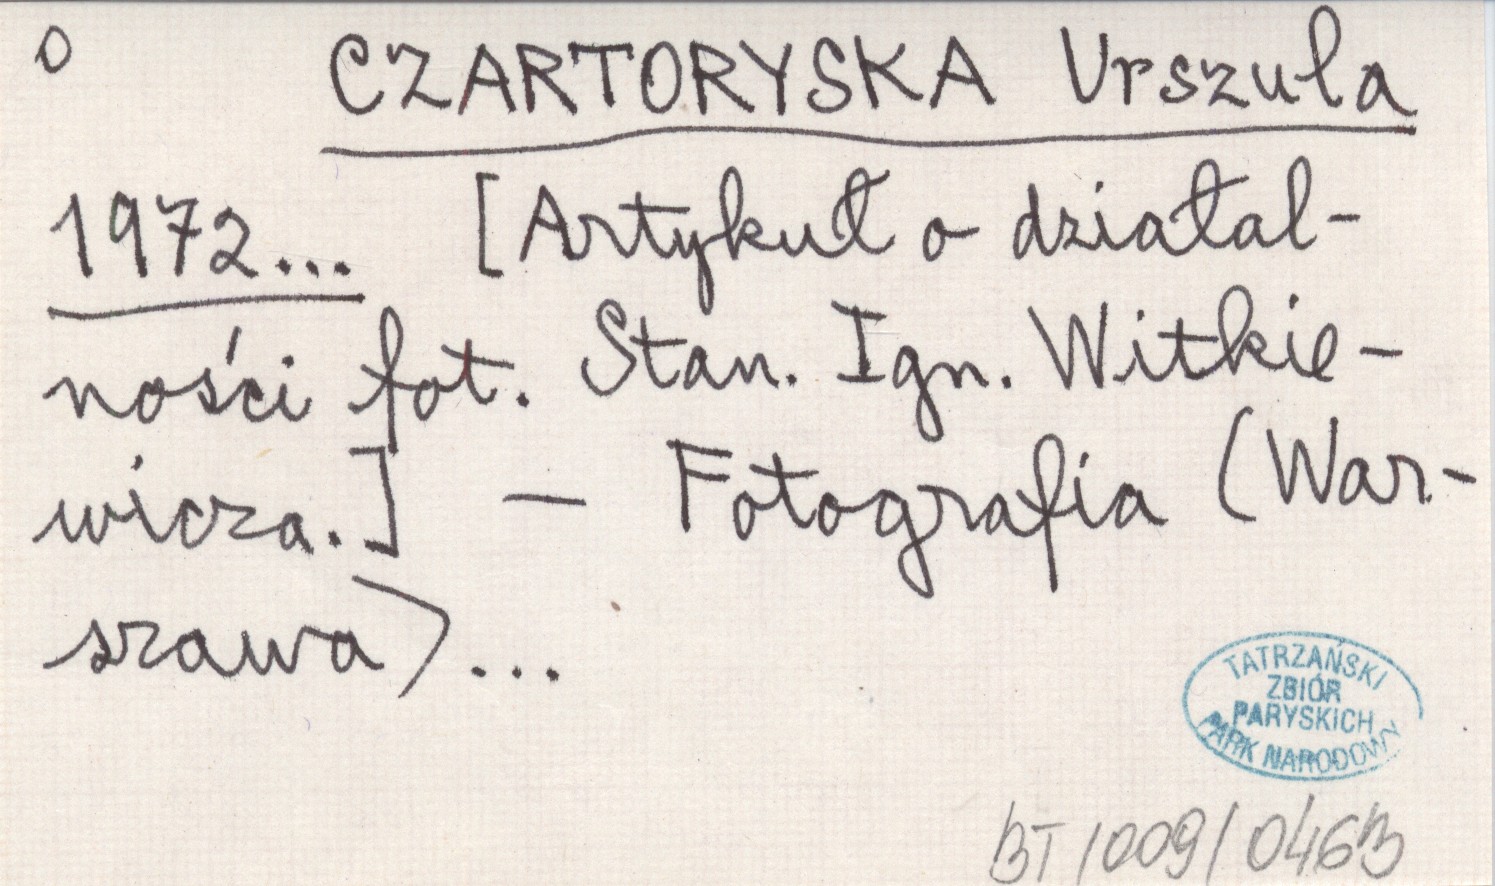 O CZARTORYSKA Urszula
1972... [Artykuł o działal-
ności fot. Stan. Ign. Witkie-
wicza.] — Fotografia (War-
szawa)...
TATRZAŃSKI
ZBIÓR
PARYSKICH
PARK NARODOWY
BT/009/0463